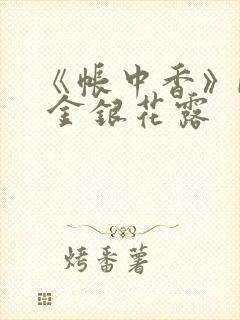 《帐中香》
金银花露
烤番薯